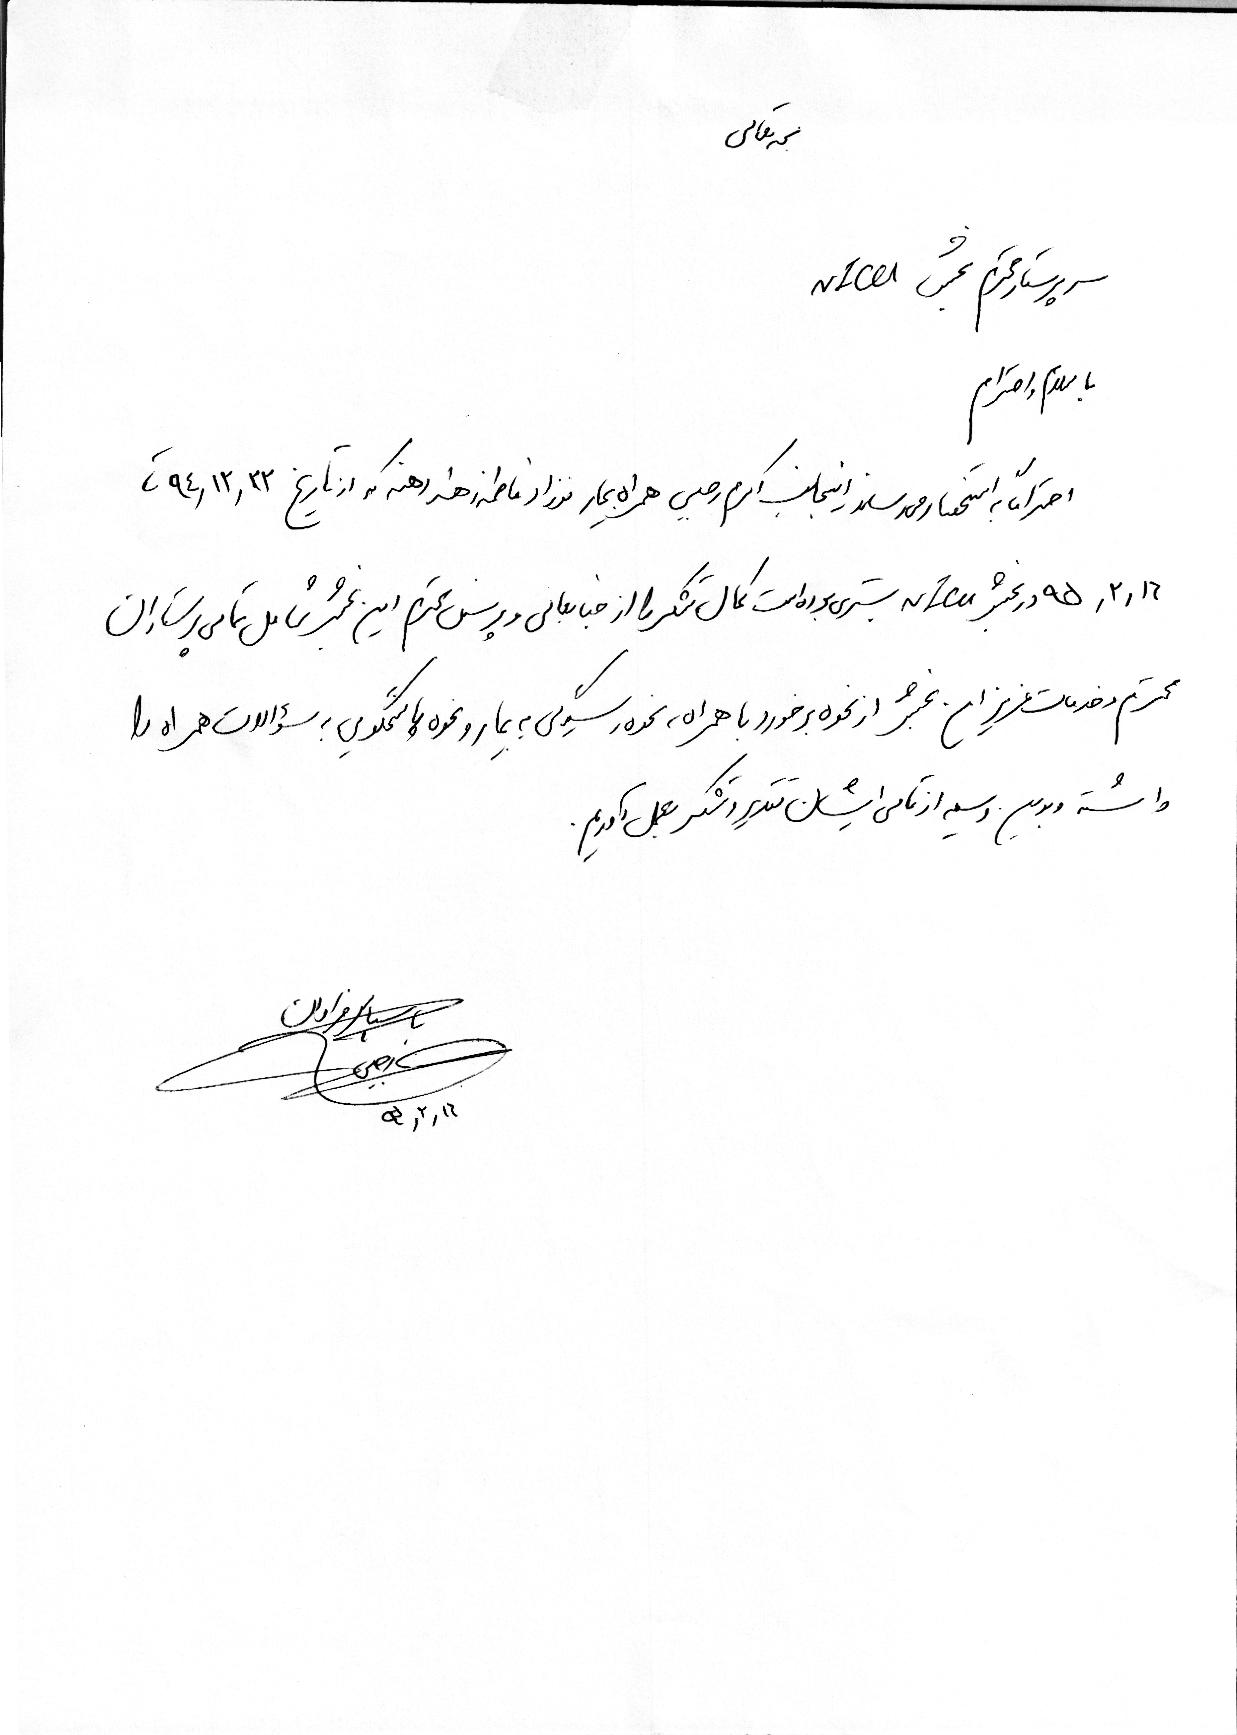 بسمه تعالی
سرپرستار محترم بخش NICU
با سلام و احترام
احتراماً به استحضار می رساند اینجانب اکرم رجبی همراه بیمار نوزاد فاطمه زهرا که از تاریخ ۹۴٫۱۲٫۲۲ تا
۹۵٫۲٫۱۶ در بخش NICU بستری بوده است کمال تشکر را از جنابعالی و پرسنل محترم این بخش شامل تمامی پرستاران
محترم و خدمات عزیز این بخش از نحوه برخورد با همراه، نحوه رسیدگی به بیمار و نحوه پاسخگویی به سؤالات همراه را
داشته و بدین وسیله از تمامی ایشان تقدیر و تشکر بعمل آوریم.
با سپاس فراوان
رجبی
۹۵٫۲٫۱۶